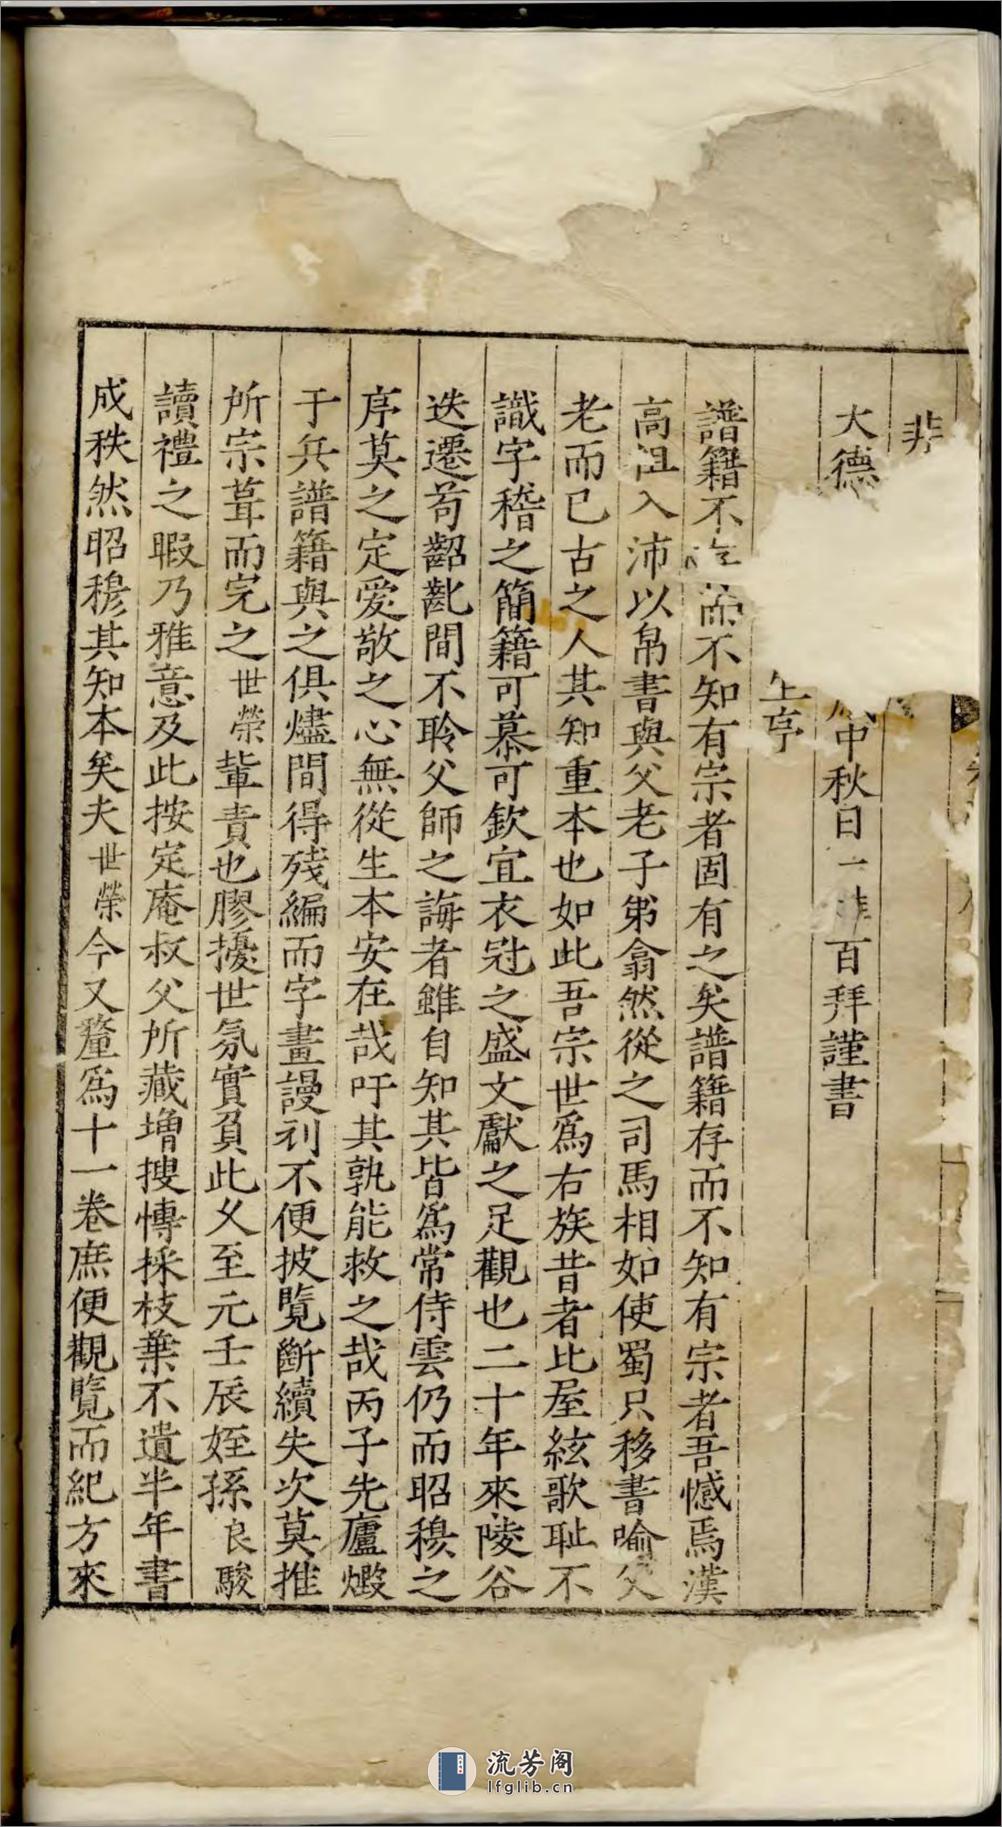 非
大德中秋日一百拜謹書
序
譜籍不而不知有宗者固有之矣譜籍存而不知有宗者吾憾焉漢
高祖入沛以帛書與父老子弟翕然從之司馬相如使蜀只移書喻父
老而已古之人其知重本也如此吾宗世爲右族昔者比屋絃歌恥不
識字稽之簡籍可慕可欽宜衣冠之盛文獻之足觀也二十年來陵谷
迭遷苟齠齔間不聆父師之誨者雖自知其皆爲常侍雲仍而昭穆之
序莫之定愛敬之心無從生本安在哉吁其孰能救之哉丙子先廬燬
于兵譜籍與之俱燼間得殘編而字畫謾刓不便披覽斷續失次莫推
所宗葺而完之世榮輩責也膠擾世氛實負此父至元壬辰姪孫良駿
讀禮之暇乃雅意及此按定庵叔父所藏增搜慱採枝葉不遺半年書
成秩然昭穆其知本矣夫世榮今又釐爲十一卷庶便觀覽而紀方來
流芳阁
lfglib.cn